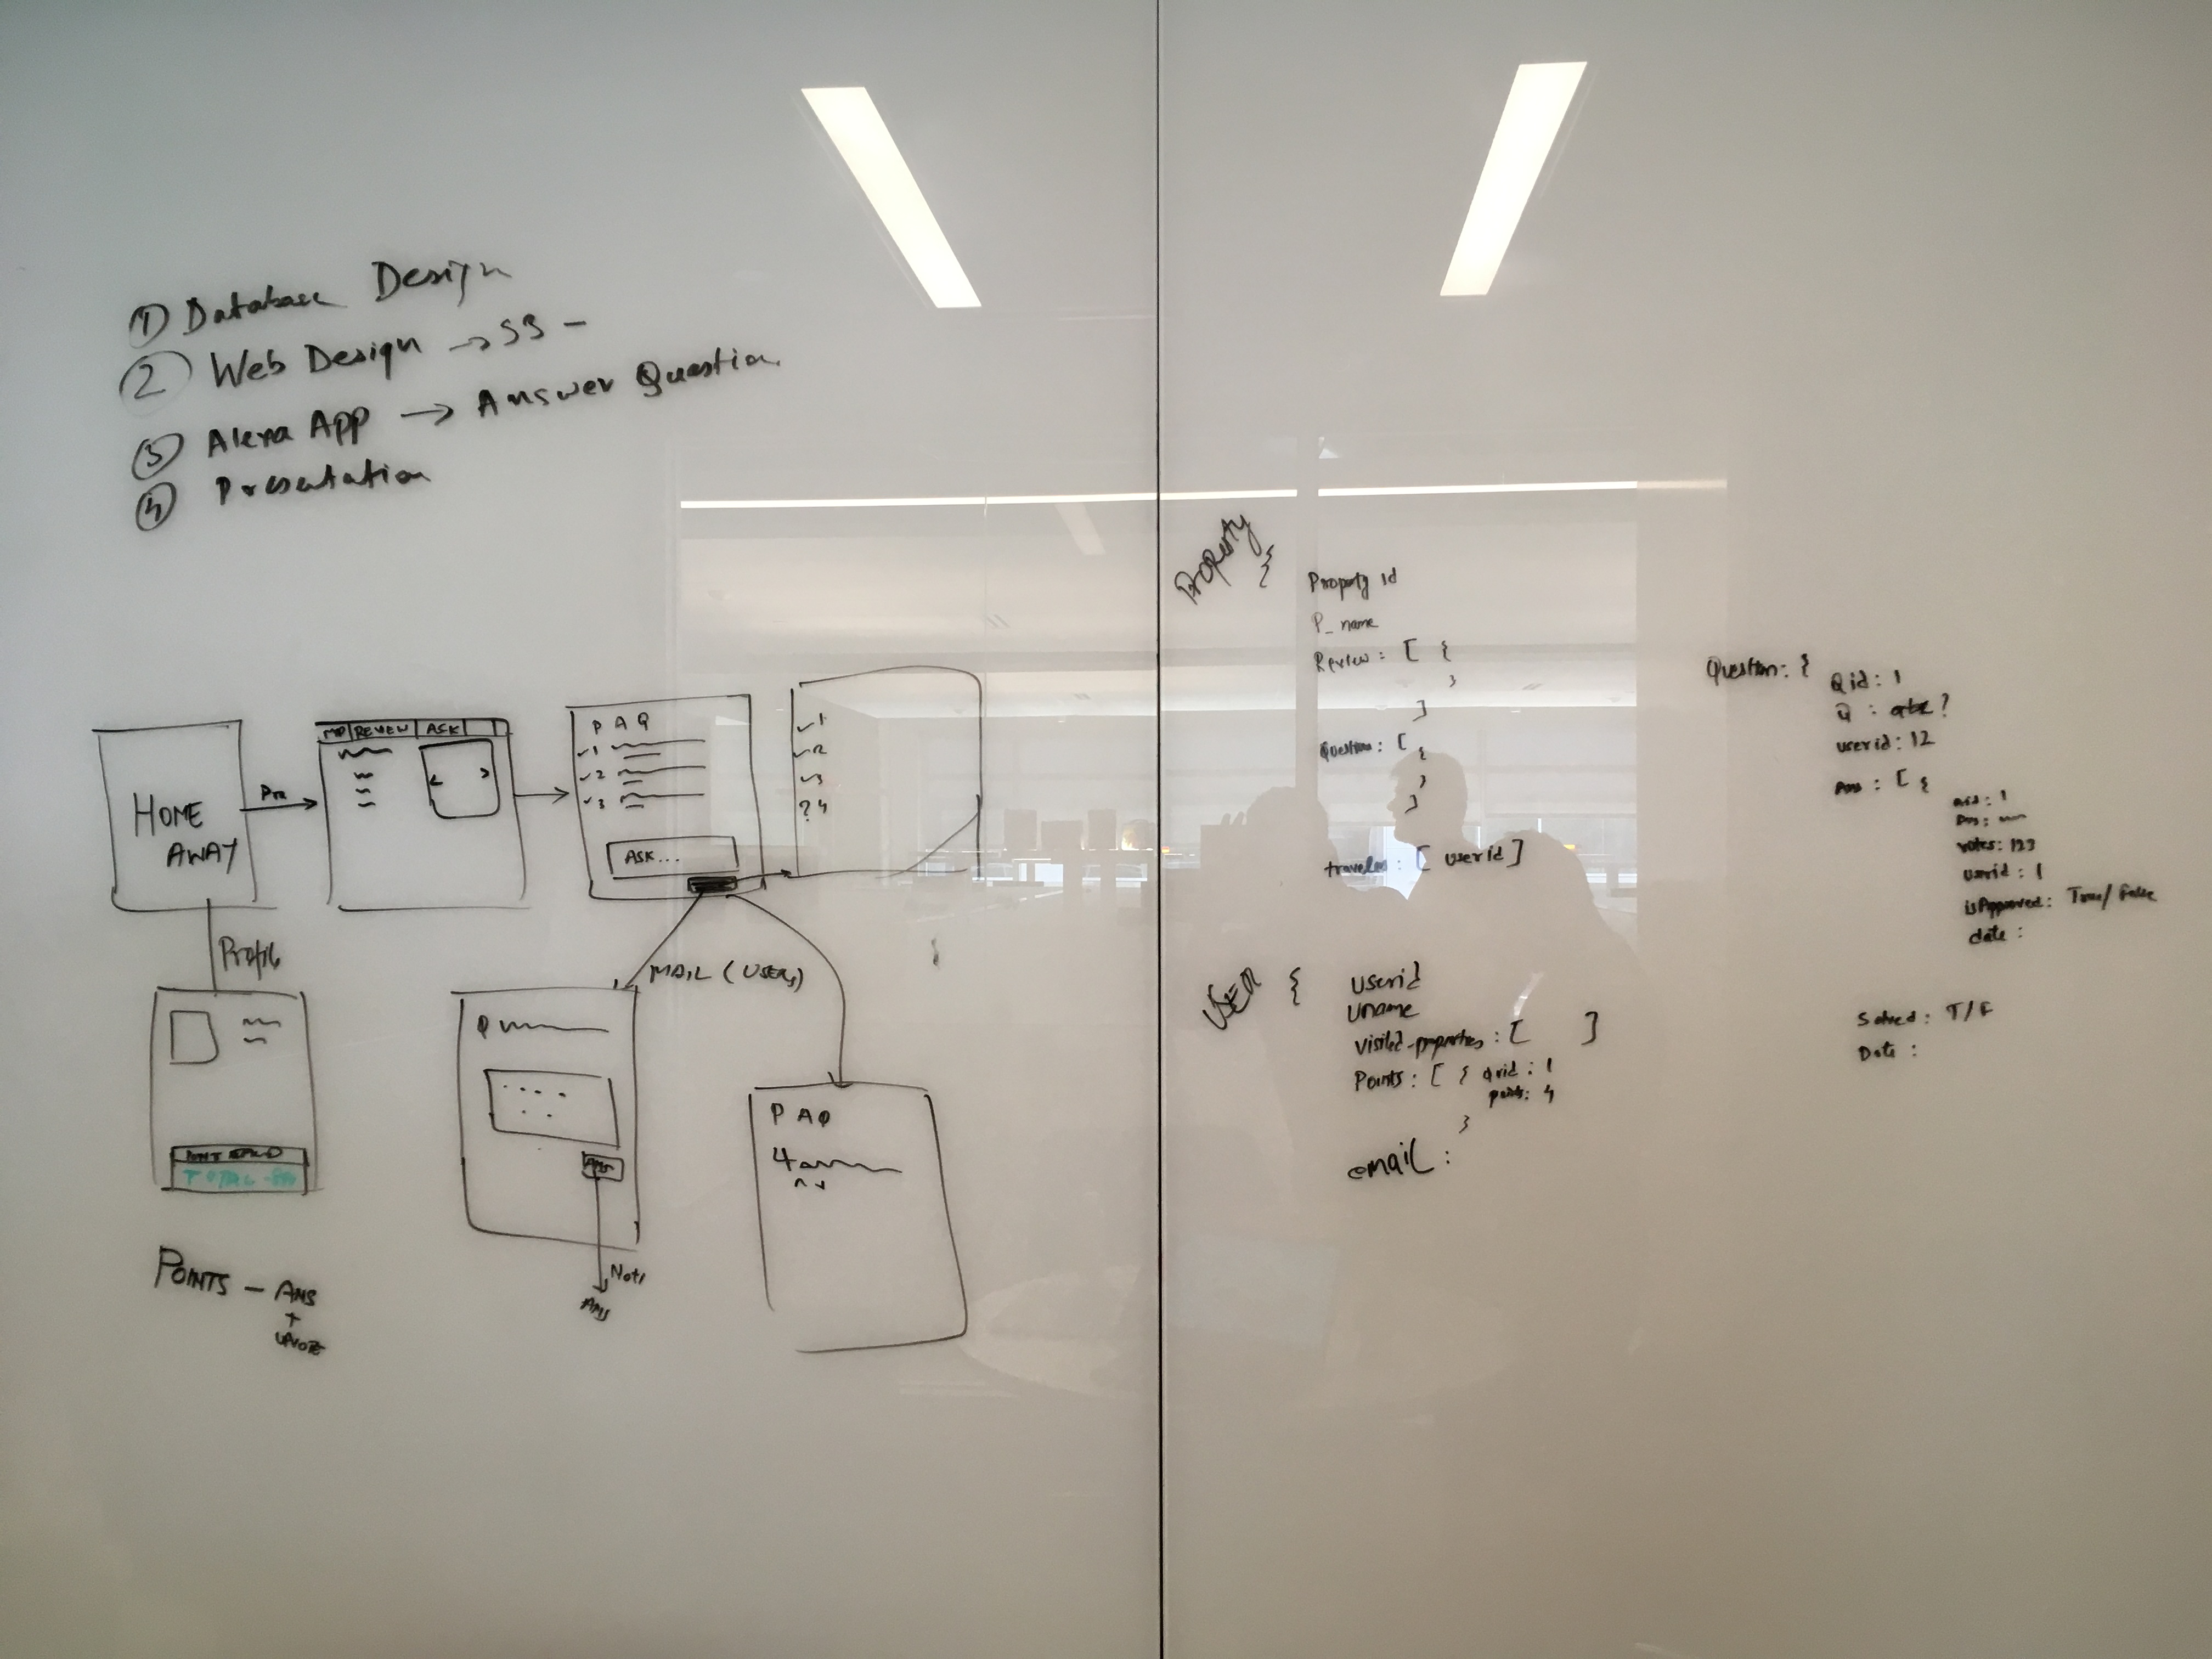 ① Database Design
② Web Design → S3 -
③ Alexa App → Answer Question
④ Presentation
HOME
AWAY
REVIEW
ASK
P A Q
✓1
✓2
✓3
ASK...
✓1
✓2
✓3
? 4
Profile
MAIL (USERS)
Q
ANS
Noti
ANS
P A Q
4
TOTAL
POINTS - ANS
+
UPVOTE
Property {
Property id
P_name
Review : [ {
}
]
Question : [
{
}
]
traveler : [ userid ]
USER {
userid
uname
visited-properties : [ ]
Points : [ { qrid : 1
points : 4
}
email :
Question : {
Qid : 1
Q : abc ?
userid : 12
Ans : [ {
aid : 1
Ans :
votes : 123
userid : 1
isApproved : True/False
date :
Solved : T/F
Date :